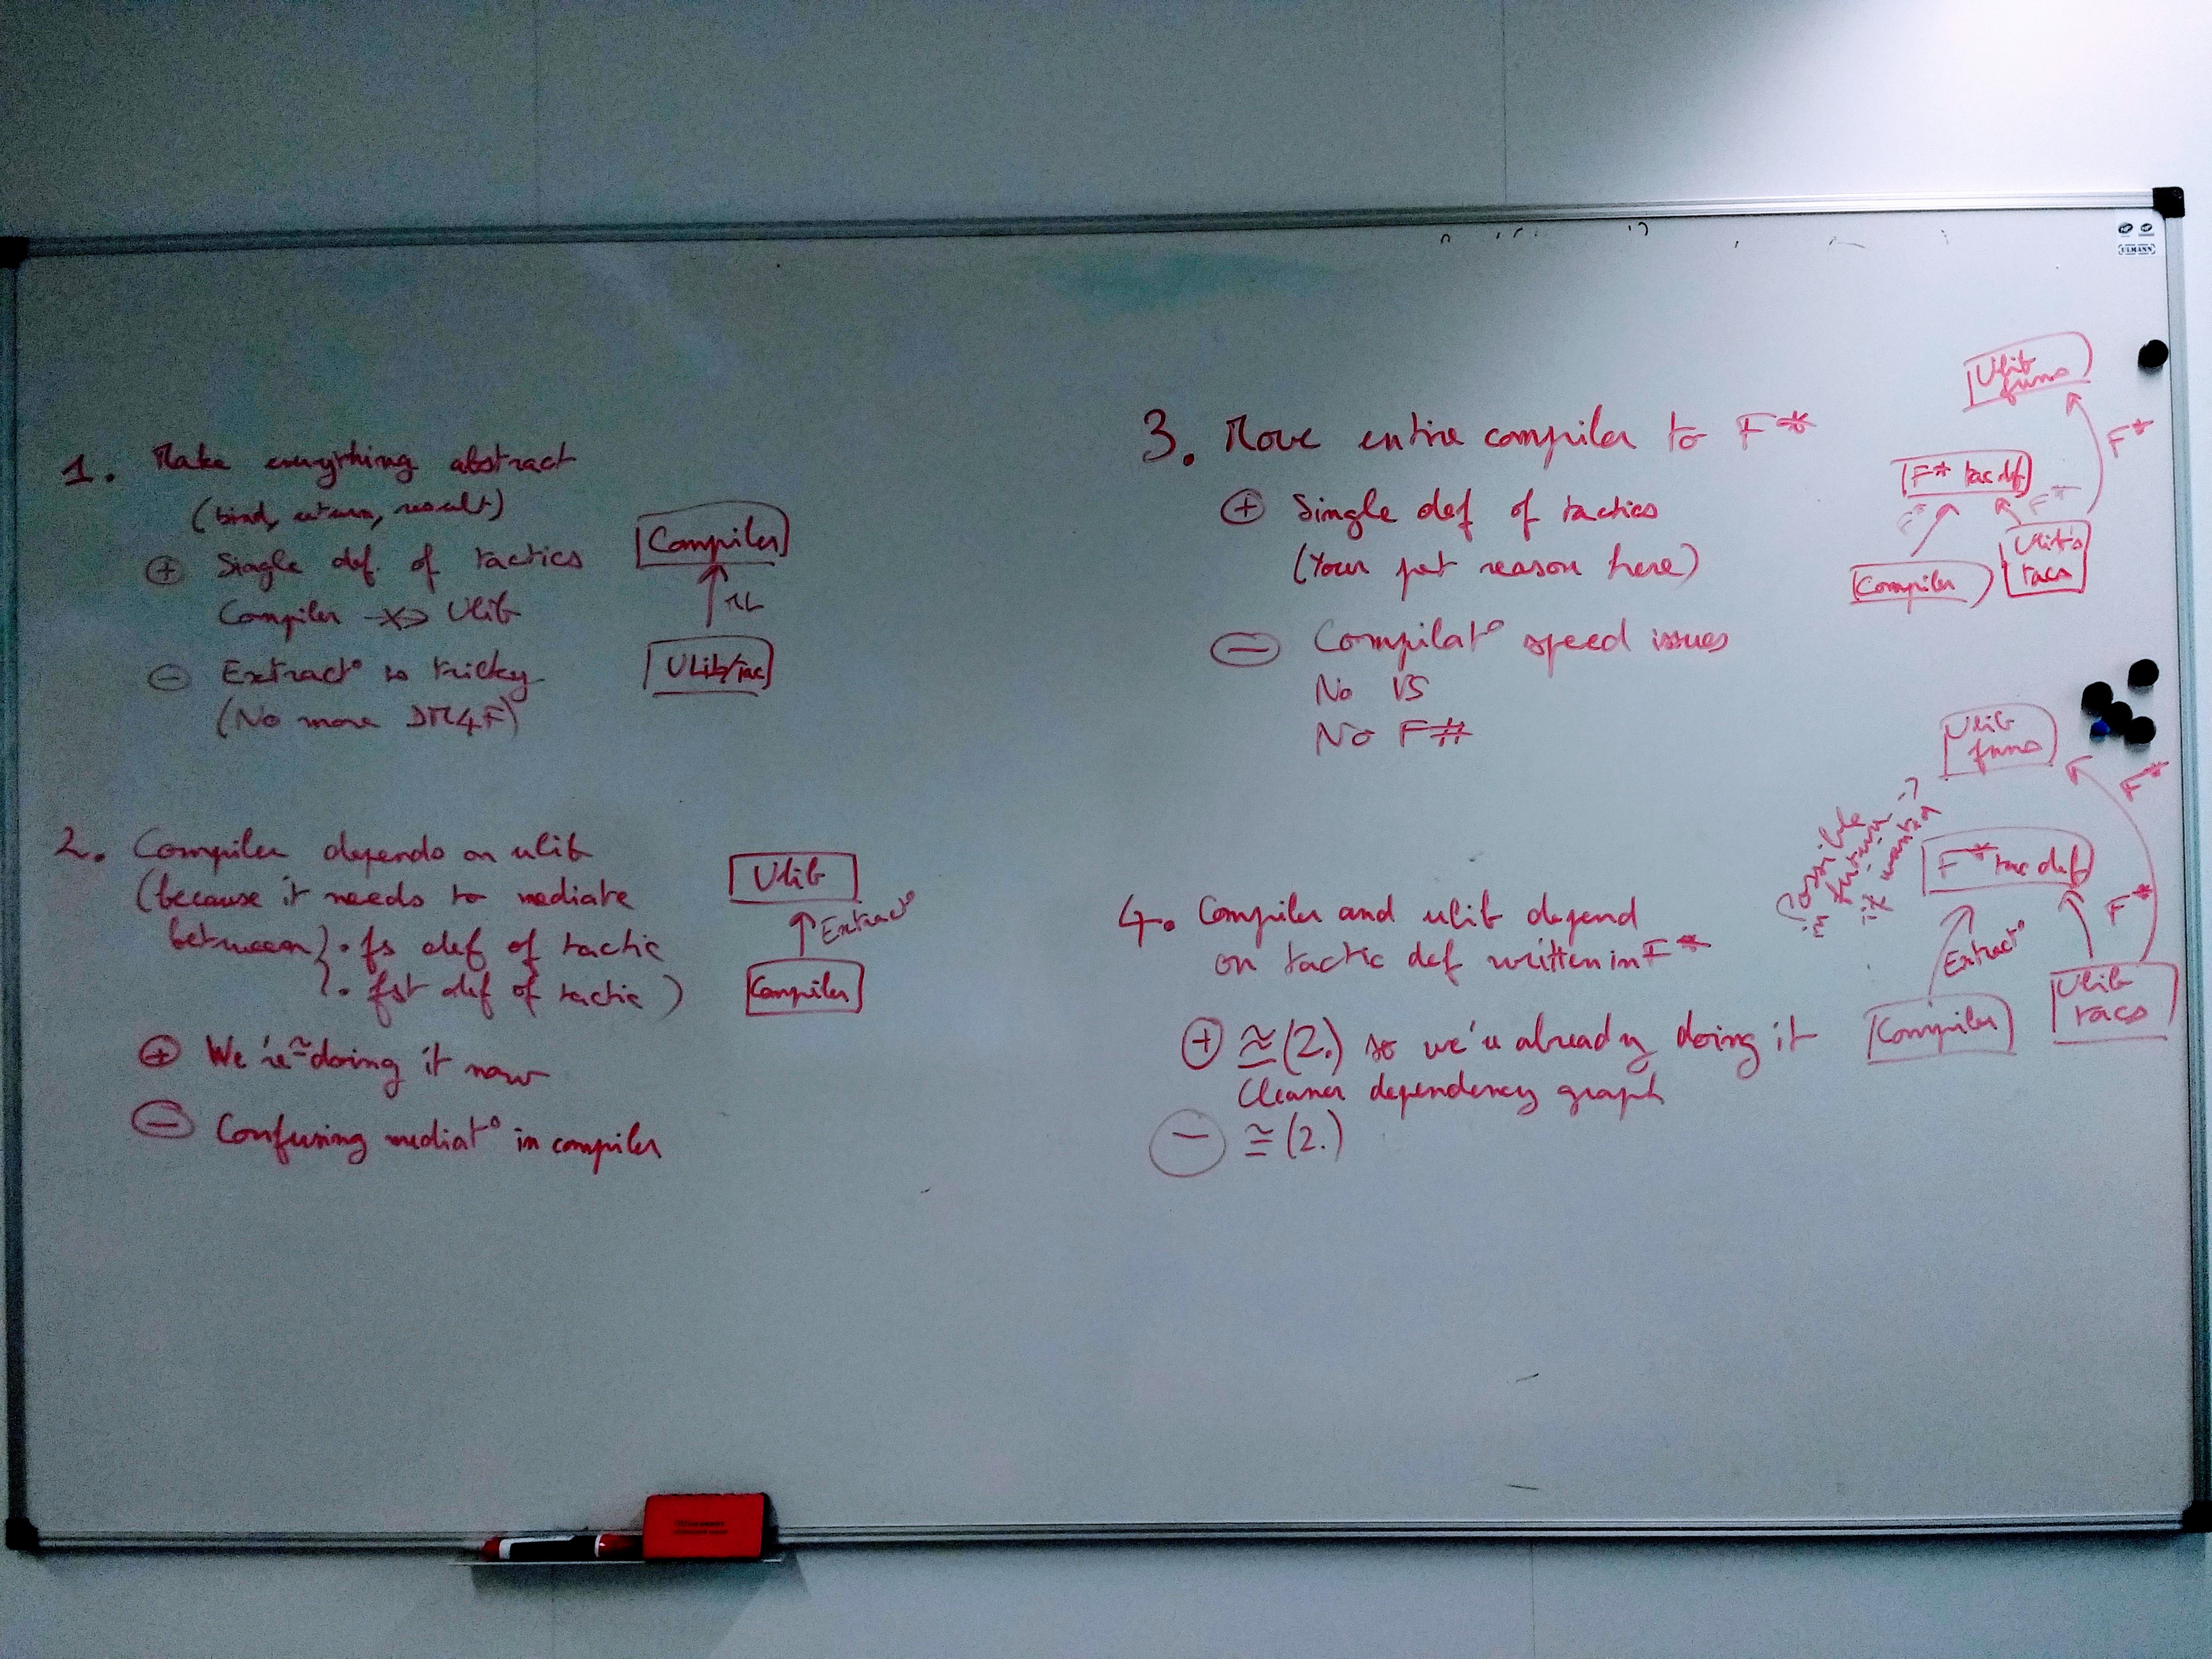 1. Make everything abstract
(bind, return, result)
⊕ Single def. of tactics
Compiler -X-> Ulib
⊖ Extract° is tricky
(No more DM4F)
Compiler
ML
Ulib/tac
2. Compiler depends on ulib
(because it needs to mediate
between } . fs def of tactic
. fst def of tactic)
⊕ We're ≃ doing it now
⊖ Confusing mediat° in compiler
Ulib
Extract°
Compiler
3. Move entire compiler to F*
⊕ Single def of tactics
(Your pet reason here)
⊖ Compilat° speed issues
No VS
No F#
Ulib
funs
F*
F* tac def
F*
F*
Compiler
Ulib's
tacs
4. Compiler and ulib depend
on tactic def written in F*
⊕ ≅ (2.) so we're already doing it
Cleaner dependency graph
⊖ ≅ (2.)
Ulib
funs
F*
Possible
in future ->
if wanted
F* tac def
Extract°
F*
Compiler
Ulib
tacs
ULMANN